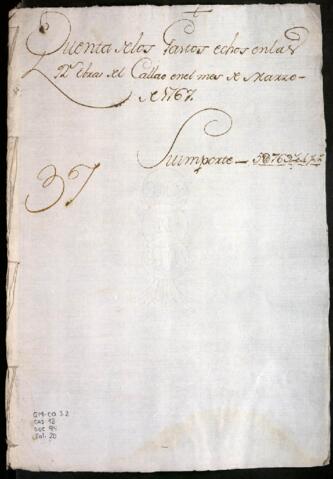 +
Quenta de los Gastos echos en las
Rs. Obras del Callao en el mes de Marzo
de 1767.
Su importe —
37
GM-CO 32
CAJ 12
DOC 94
Fol. 20